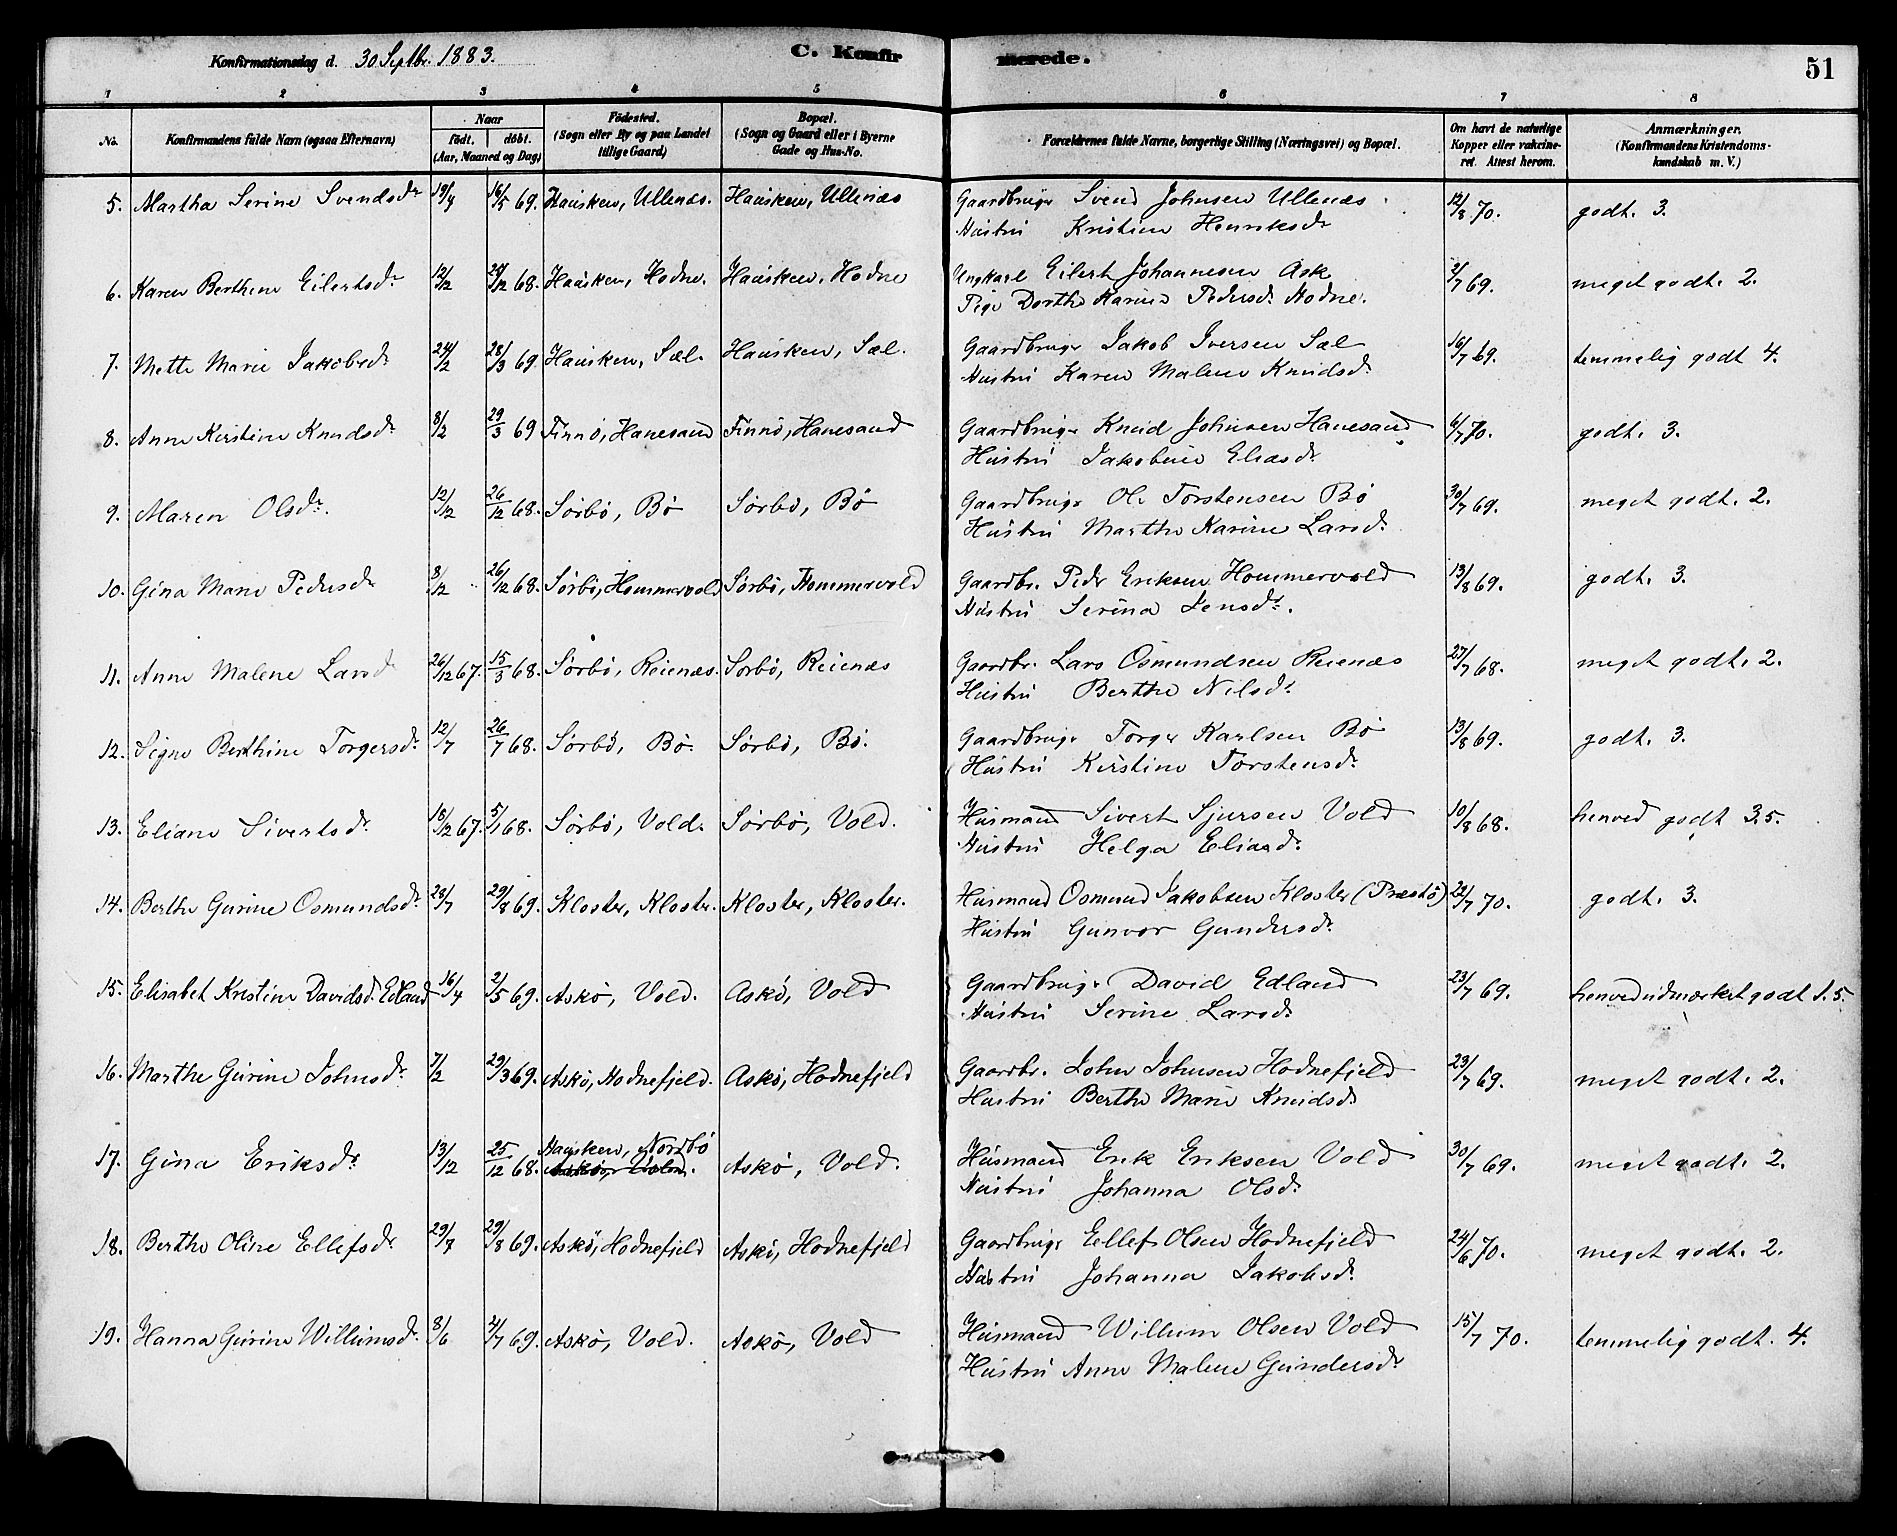 Konfirmationsdag d. 30 Septbr. 1883. C. Konfirmerede. 51
1 2 3 4 5 6 7 8
No. Konfirmandens fulde Navn (ogsaa Efternavn) Naar født. døbt. (Aar, Maaned og Dag) Fødested. (Sogn eller By og paa Landet tillige Gaard) Bopæl. (Sogn og Gaard eller i Byerne Gade og Hus-No. Forældrenes fulde Navne, borgerlige Stilling (Næringsvei) og Bopæl. Om havt de naturlige Kopper eller vaccineret. Attest herom. Anmærkninger. (Konfirmandens Kristendomskundskab m. V.)
5. Martha Serine Svendsdr 19/4 16/5 69. Hausken, Ullenæs. Hausken, Ullenæs Gaardbruger Svend Johnsen Ullenæs 12/8 70. godt. 3.
Hustru Kristine Henriksdr
6. Karen Berthine Eilertsdr 12/12 28/12 68. Hausken, Hodne. Hausken, Hodne Ungkarl Eilert Johannesen Ask 2/7 69. meget godt. 2.
Pige Dorthe Karine Pedersdr Hodne.
7. Mette Marie Jakobsdr 24/2 28/3 69. Hausken, Sæl. Hausken, Sæl. Gaardbruger Jakob Iversen Sæl 16/7 69. temmelig godt 4.
Hustru Karen Malene Knudsdr
8. Anne Kirstine Knudsdr 8/2 29/3 69 Finnö, Hanesand Finnö, Hanesand Gaardbruger Knud Johnsen Hanesand 6/7 70. godt. 3.
Hustru Jakobine Eliasdr
9. Maren Olsdr. 12/12 26/12 68. Sörbö, Bö Sörbö, Bö Gaardbruger Ole Torstensen Bö 30/7 69. meget godt. 2.
Hustru Marthe Karine Larsdr
10. Gina Marie Pedersdr 8/12 26/12 68. Sörbö, Hommervold Sörbö, Hommervold Gaardbr. Peder Eriksen Hommervold 13/8 69. godt. 3.
Hustru Serina Jensdr.
11. Anne Malene Larsd 26/12 67. 15/3 68. Sörbö, Reienæs. Sörbö, Reienæs Gaardbr. Lars Osmundsen Reienæs 27/7 68. meget godt. 2.
Hustru Berthe Nilsdr
12. Signe Berthine Torgersdr 12/7 26/7 68. Sörbö, Bö. Sörbö, Bö. Gaardbruger Torger Karlsen Bö 13/8 69. godt. 3.
Hustru Kirstine Torstensdr
13. Eliane Sivertsdr 18/12 67. 5/1 68. Sörbö, Vold. Sörbö, Vold. Husmand Sivert Sjursen Vold 10/8 68. henved godt 3.5.
Hustru Helga Eliasdr
14. Berthe Gurine Osmundsdr 28/7 29/8 69. Kloster, Kloster. Kloster, Kloster. Husmand Osmund Jakobsen Kloster (Præstö) 22/7 70. godt. 3.
Hustru Gunvor Gundersdr
15. Elisabet Kristine Davidsd. Edland 16/4 2/5 69. Askö, Vold. Askö, Vold Gaardbruger David Edland 23/7 69. henved udmærket godt 1.5.
Hustru Serine Larsdr
16. Marthe Gurine Johnsdr 7/2 29/3 69. Askö, Hodnefjeld. Askö, Hodnefjeld Gaardbr. John Johnsen Hodnefjeld 23/7 69. meget godt. 2.
Hustru Berthe Marie Knudsdr
17. Gina Eriksdr 13/12 25/12 68. Hausken, Nordbö Askö, Vold. Askö, Vold. Husmand Erik Eriksen Vold 30/7 69. meget godt. 2.
Hustru Johanna Olsdr
18. Berthe Oline Ellefsdr 29/7 29/8 69. Askö, Hodnefjeld Askö, Hodnefjeld Gaardbruger Ellef Olsen Hodnefjeld 24/6 70. meget godt. 2.
Hustru Johanna Jakobsdr
19. Hanna Gurine Willumsdr 8/6 4/7 69. Askö, Vold. Askö, Vold Husmand Willum Olsen Vold 15/7 70. temmelig godt. 4.
Hustru Anne Malene Gundersdr